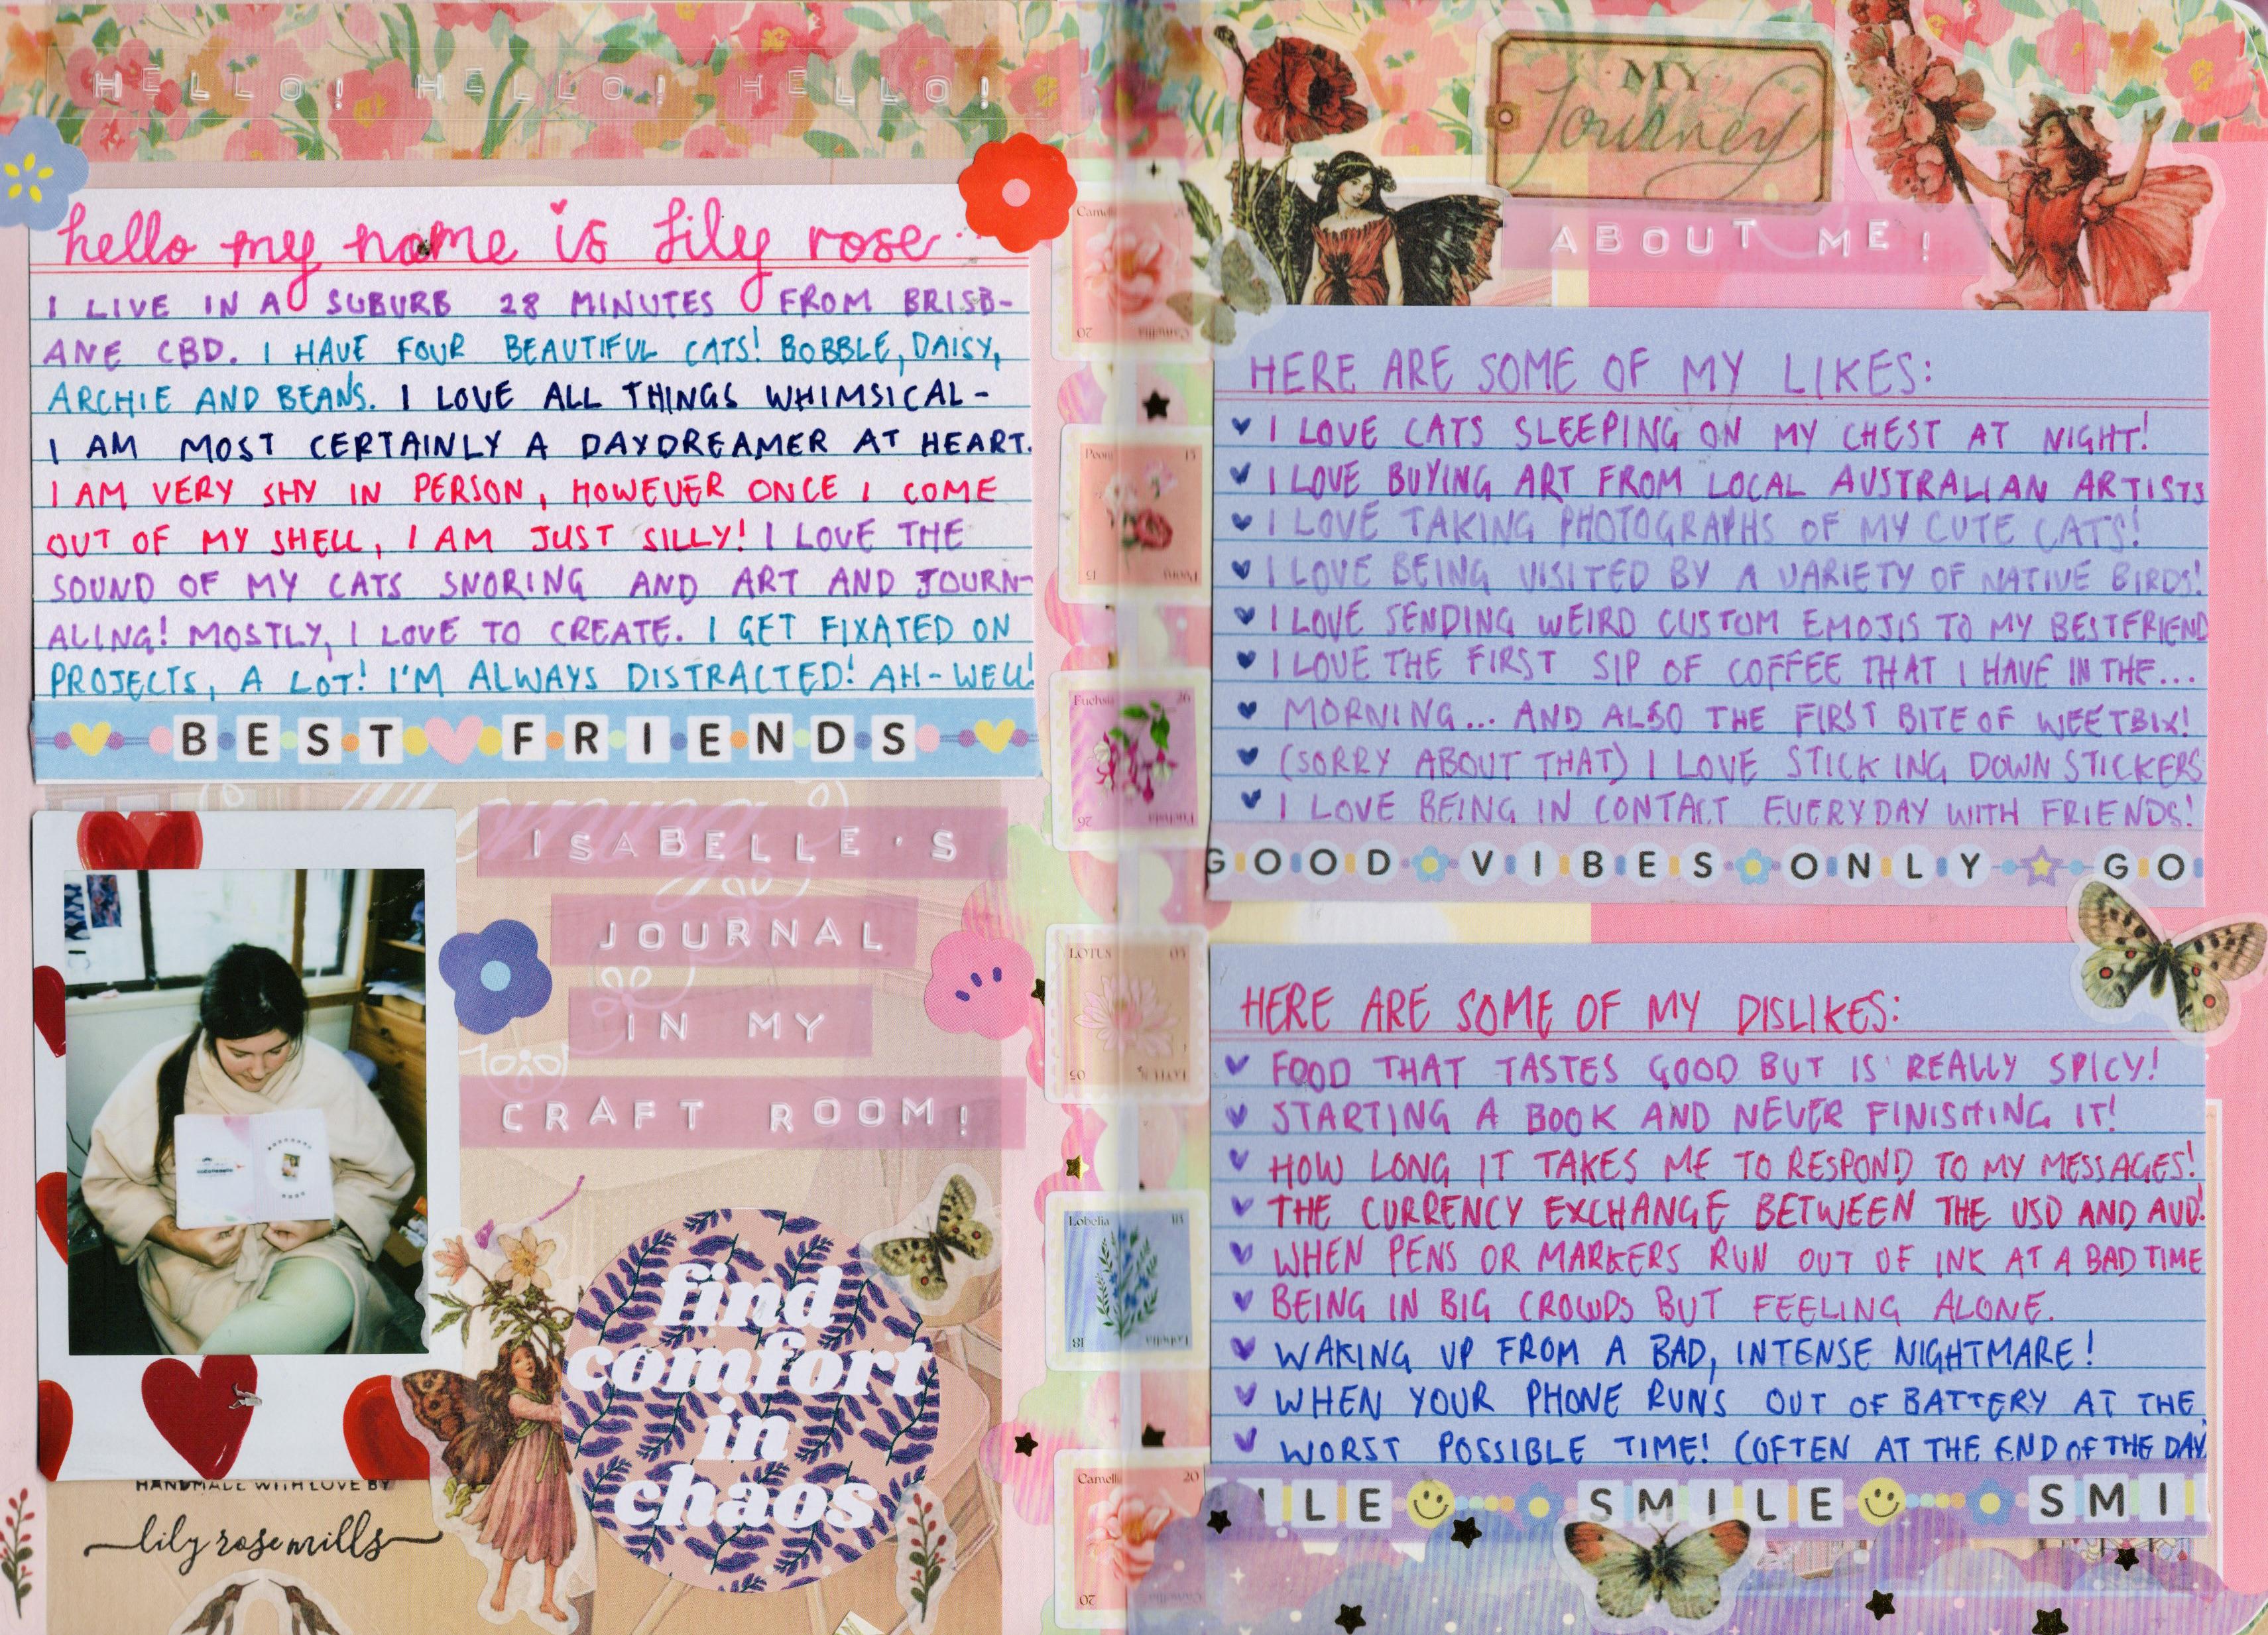 HELLO! HELLO! HELLO!
hello my name is lily rose
I LIVE IN A SUBURB 28 MINUTES FROM BRISB-
ANE CBD. I HAVE FOUR BEAUTIFUL CATS! BOBBLE, DAISY,
ARCHIE AND BEANS. I LOVE ALL THINGS WHIMSICAL-
I AM MOST CERTAINLY A DAYDREAMER AT HEART.
I AM VERY SHY IN PERSON, HOWEVER ONCE I COME
OUT OF MY SHELL, I AM JUST SILLY! I LOVE THE
SOUND OF MY CATS SNORING AND ART AND JOURN-
ALING! MOSTLY, I LOVE TO CREATE. I GET FIXATED ON
PROJECTS, A LOT! I'M ALWAYS DISTRACTED! AH-WELL!
BEST FRIENDS
ISABELLE'S
JOURNAL
IN MY
CRAFT ROOM!
find
comfort
in
chaos
HANDMADE WITH LOVE BY
lily rose mills
Camellia 20
20 Camellia
Peony 15
15 Peony
Fuchsia 26
26 Fuchsia
LOTUS 05
05 LOTUS
Lobelia 18
18 Lobelia
Camellia 20
20 Camellia
MY
Journey
ABOUT ME!
HERE ARE SOME OF MY LIKES:
I LOVE CATS SLEEPING ON MY CHEST AT NIGHT!
I LOVE BUYING ART FROM LOCAL AUSTRALIAN ARTISTS
I LOVE TAKING PHOTOGRAPHS OF MY CUTE CATS!
I LOVE BEING VISITED BY A VARIETY OF NATIVE BIRDS!
I LOVE SENDING WEIRD CUSTOM EMOJIS TO MY BESTFRIEND
I LOVE THE FIRST SIP OF COFFEE THAT I HAVE IN THE...
MORNING... AND ALSO THE FIRST BITE OF WEETBIX!
(SORRY ABOUT THAT) I LOVE STICKING DOWN STICKERS
I LOVE BEING IN CONTACT EVERYDAY WITH FRIENDS!
GOOD VIBES ONLY GO
HERE ARE SOME OF MY DISLIKES:
FOOD THAT TASTES GOOD BUT IS REALLY SPICY!
STARTING A BOOK AND NEVER FINISHING IT!
HOW LONG IT TAKES ME TO RESPOND TO MY MESSAGES!
THE CURRENCY EXCHANGE BETWEEN THE USD AND AUD!
WHEN PENS OR MARKERS RUN OUT OF INK AT A BAD TIME
BEING IN BIG CROWDS BUT FEELING ALONE.
WAKING UP FROM A BAD, INTENSE NIGHTMARE!
WHEN YOUR PHONE RUNS OUT OF BATTERY AT THE
WORST POSSIBLE TIME! (OFTEN AT THE END OF THE DAY
ILE SMILE SMI